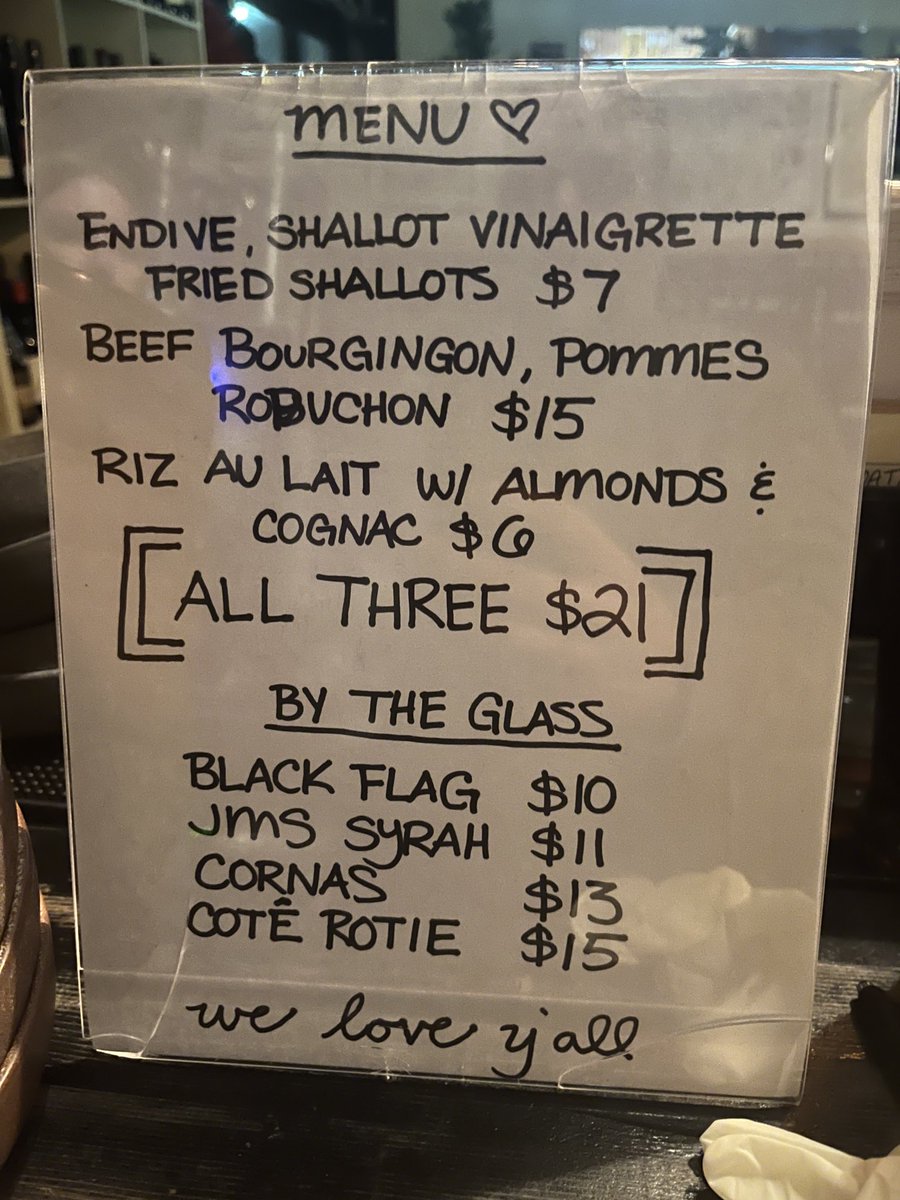 MENU ♡
ENDIVE, SHALLOT VINAIGRETTE
FRIED SHALLOTS $7
BEEF BOURGINGON, POMMES
ROBUCHON $15
RIZ AU LAIT W/ ALMONDS &
COGNAC $6
[ALL THREE $21]
BY THE GLASS
BLACK FLAG $10
JMS SYRAH $11
CORNAS $13
COTÊ ROTIE $15
we love y'all